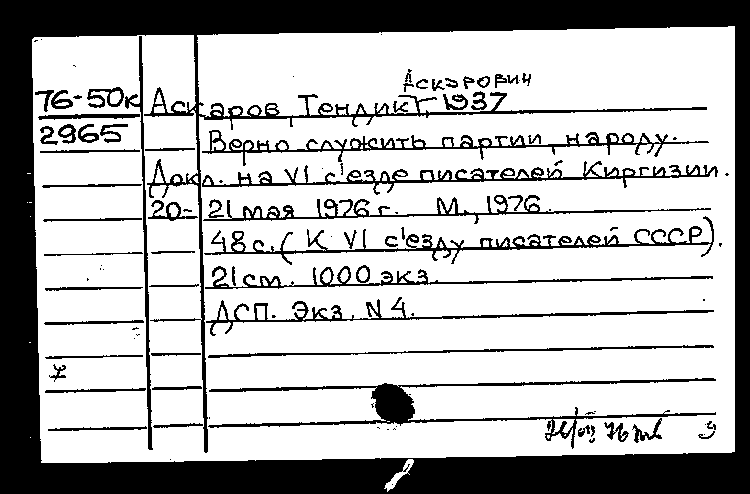 Аскэрович
76-50к Аскаров, Тендик, 1937
2965 Верно служить партии, народу.
Докл. на VI с'езде писателей Киргизии.
20- 21 мая 1976 г. М., 1976.
48 с. ( К VI с'езду писателей СССР).
21 см. 1000 экз.
ДСП. Экз. N 4.